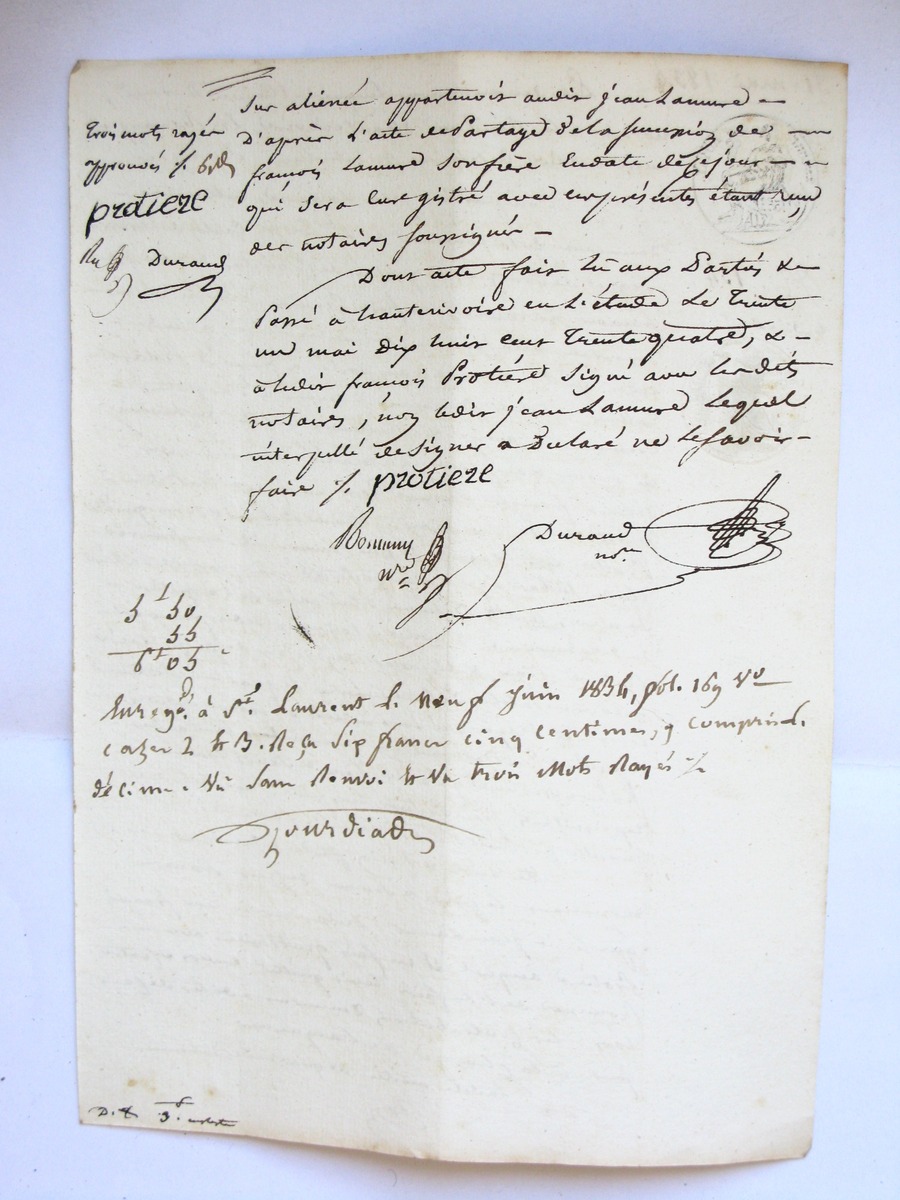 trois mots rayés
approuvés %
protiere
Durand
Sur aliénée appartenoit audit jean Lamure
D'après L'acte de Partage de la succession de
françois Lamure son frère En date de ce jour
qui sera Enregistré avec ces présentes étant reçu
des notaires soussignés
Dont acte fait lu aux Parties &
Passé à hauterivoire en L'étude Le Trente
un mai Dix huit cent Trente quatre, &
a ledit françois Protière signé avec les dits
notaires, non ledit jean Lamure Lequel
interpellé de signer a Déclaré ne Le savoir
faire %. protiere
Durand
nre
nre
5f 50
55
6f 05
Enregé. à St. Laurent le Neuf juin 1834, fol. 169 Vo
cases 2 & 3. Reçu Six francs cinq centimes, y compris le
décime. Vu sans Renvoi & Vu trois Mots Rayés %